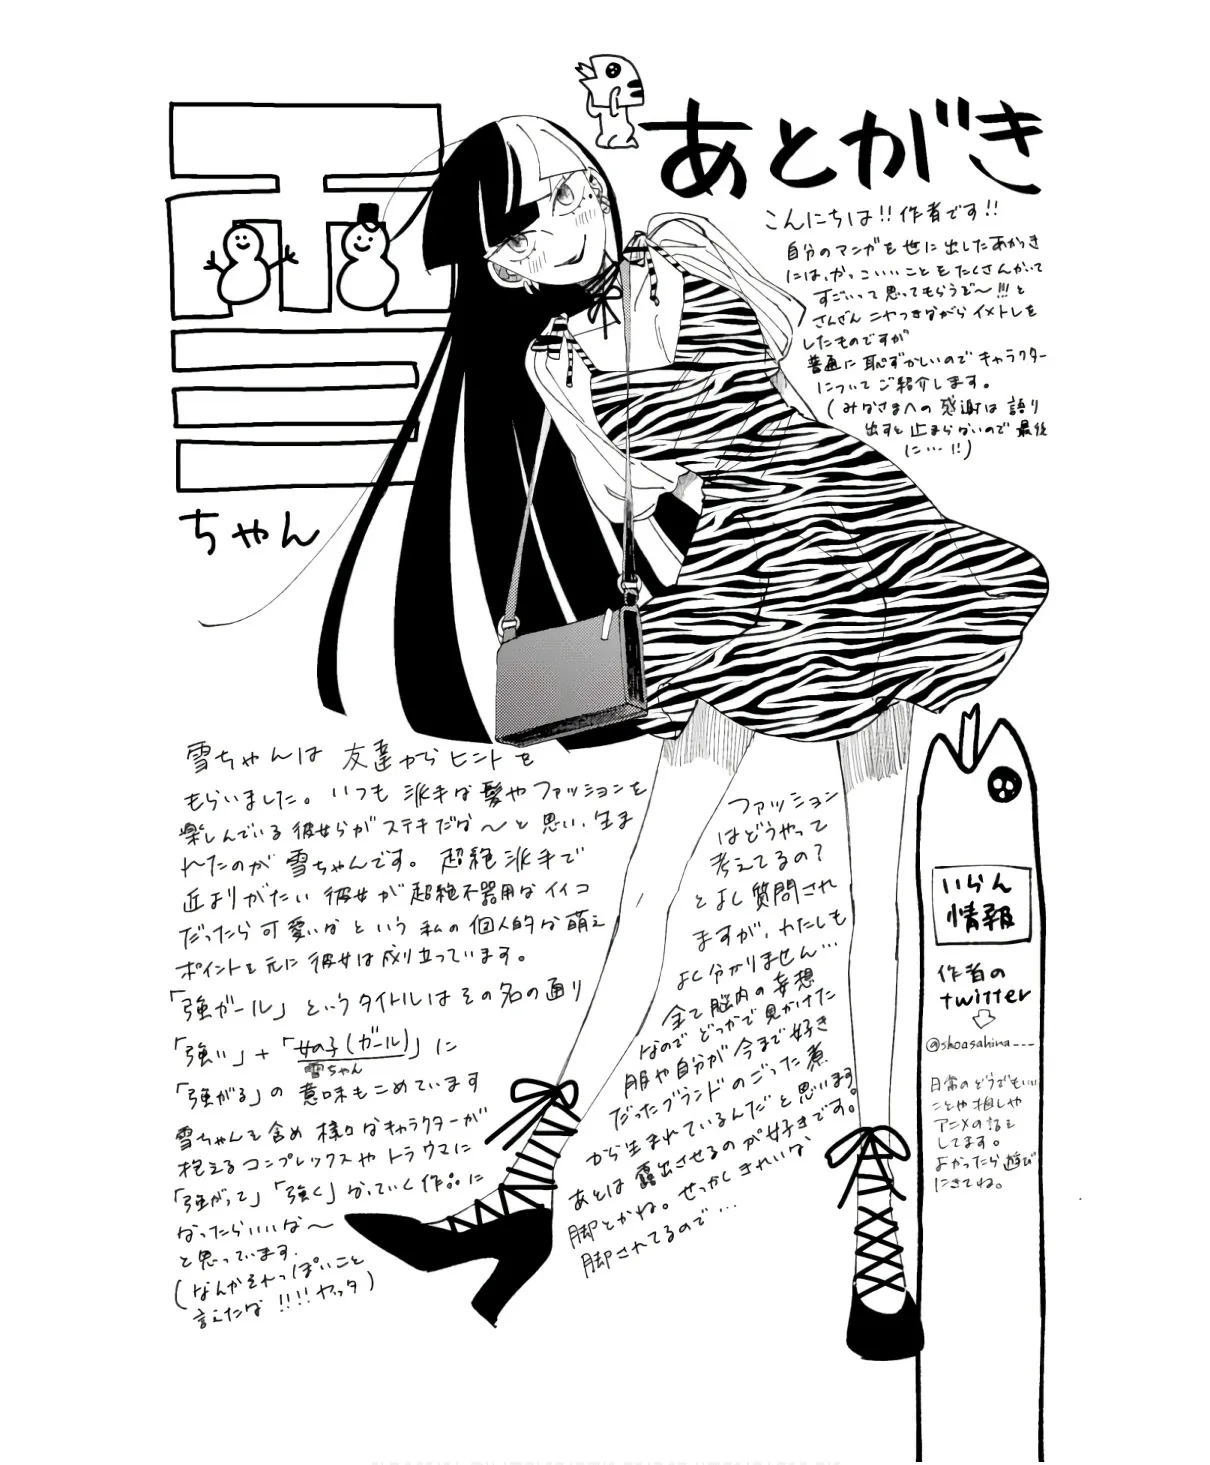 あとがき
こんにちは!!作者です!!
自分のマンガを世に出したあかつき
には、かっこいいことをたくさんかいて
すごいって思ってもらうぞ〜!!!と
さんざんニヤつきながらイメトレを
したものですが
普通に恥ずかしいのでキャラクター
についてご紹介します。
(みなさまへの感謝は語り
出すと止まらないので最後
に…!!)
雪
ちゃん
雪ちゃんは友達からヒントを
もらいました。いつも派手な髪やファッションを
楽しんでいる彼女らがステキだな〜と思い、生ま
れたのが雪ちゃんです。超絶派手で
近よりがたい彼女が超絶不器用なイイコ
だったら可愛いなという私の個人的な萌え
ポイントを元に彼女は成り立っています。
「強ガール」というタイトルはその名の通り
「強い」+「女の子(ガール)」に
雪ちゃん
「強がる」の意味もこめています
雪ちゃんを含め様々なキャラクターが
抱えるコンプレックスやトラウマに
「強がって」「強く」なっていく作品に
なったらいいな〜
と思っています.
(なんかそれっぽいこと
言えたな!!!!ヤッタ)
ファッション
はどうやって
考えてるの?
とよく質問され
ますが、わたしも
よく分かりません…
全て脳内の妄想
なのでどっかで見かけた
服や自分が今まで好き
だったブランドのごった煮
から生まれているんだと思います
あとは露出させるのが好きです。
脚とかね。せっかくきれいな
脚されてるので…
いらん
情報
作者の
twitter
@shoasahina___
日常のどうでもいい
ことや推しや
アニメの話を
してます。
よかったら遊び
にきてね。